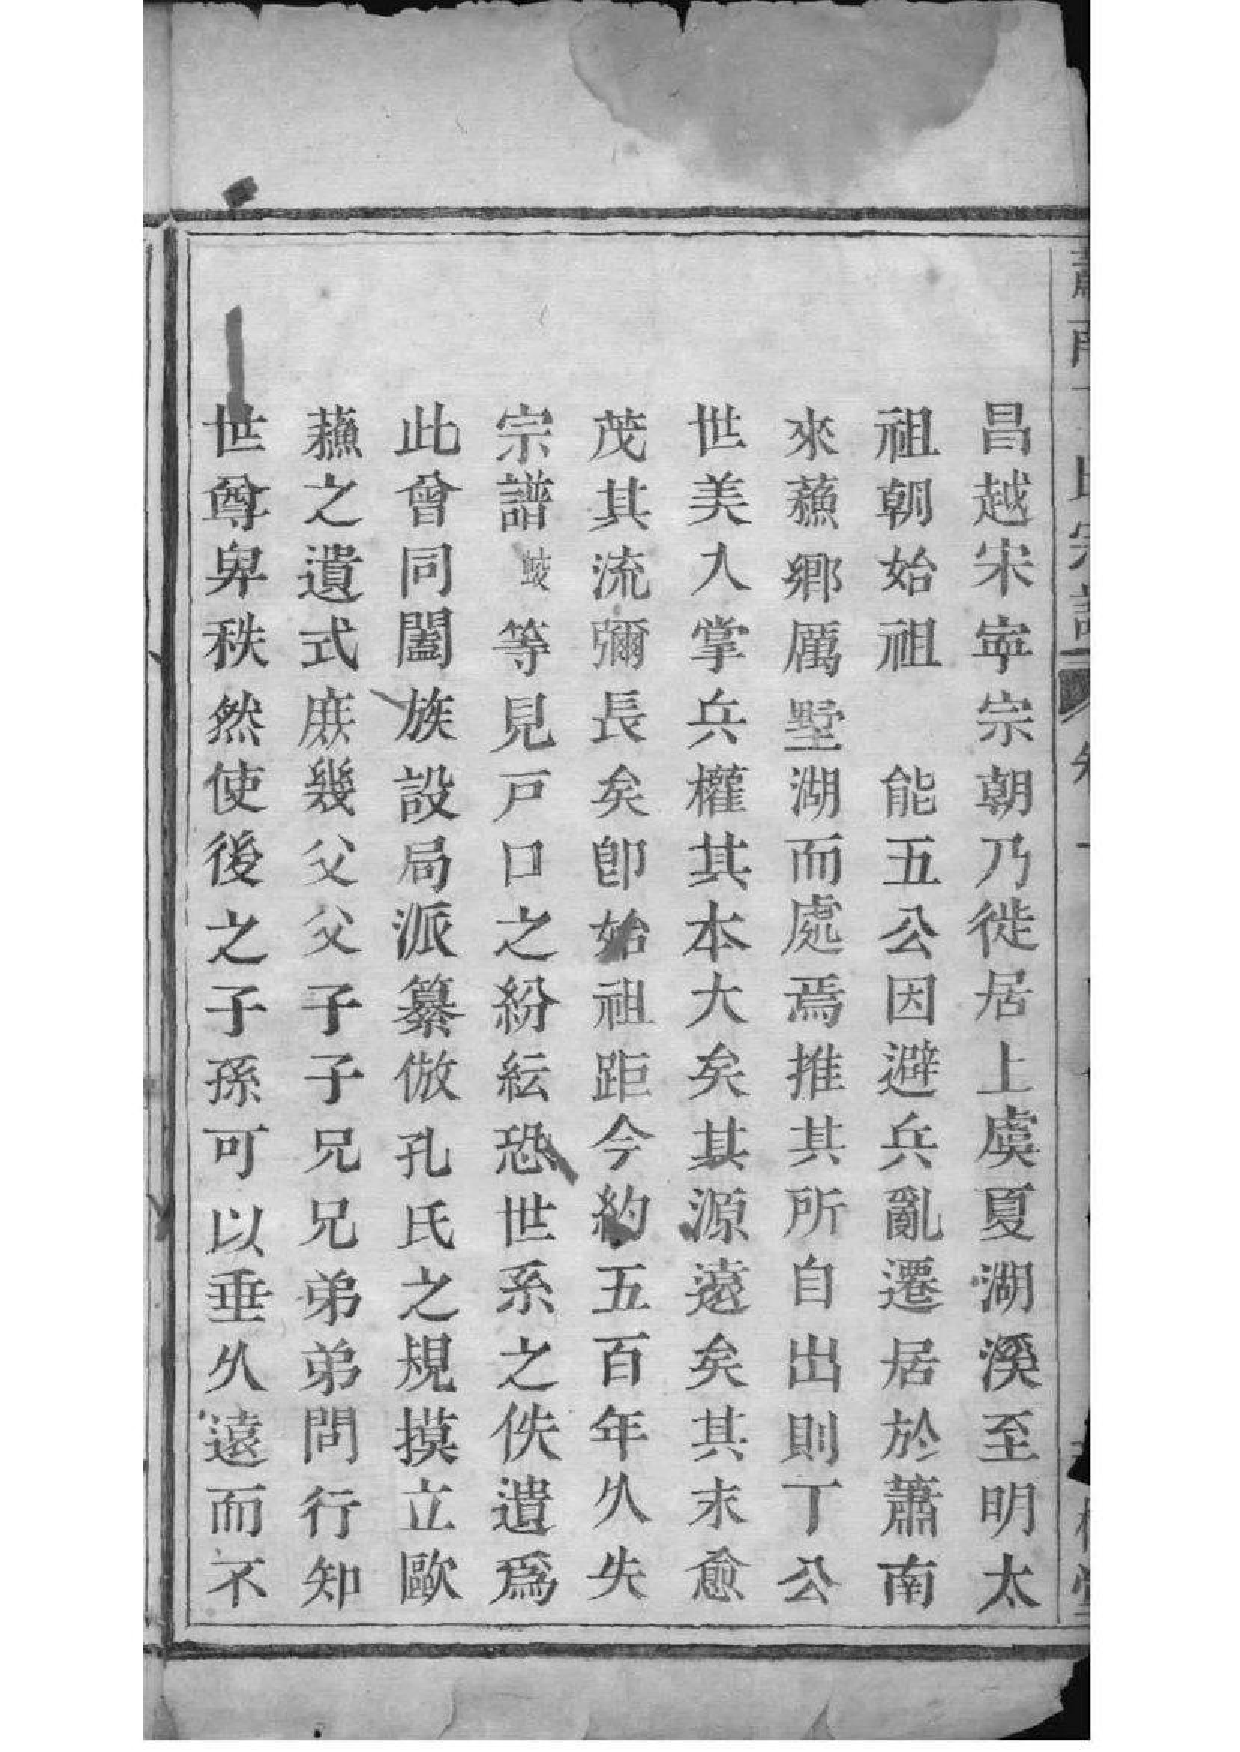 昌越宋寧宗朝乃徙居上虞夏湖溪至明太
祖朝始祖　能五公因避兵亂遷居於蕭南
來蘓鄉厲墅湖而處焉推其所自出則丁公
世美人掌兵權其本大矣其源遠矣其末愈
茂其流彌長矣卽始祖距今約五百年久失
宗譜 等見戸口之紛紜恐世系之佚遺爲
此曾同闔族設局派纂倣孔氏之規摸立歐
蘓之遺式庶幾父父子子兄兄弟弟問行知
世尊卑秩然使後之子孫可以垂久遠而不